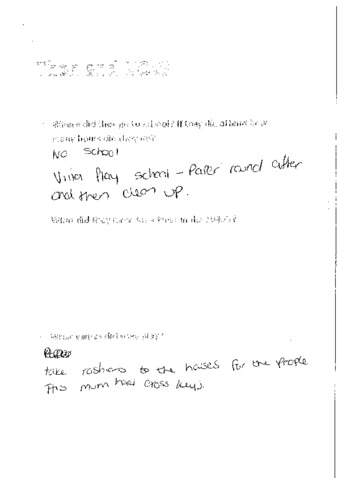 Then and Now
Where did they go to school? If they did, attend how
many hours did they do?
NO School
Play school - Paper round after
and then clean up.
What did they have for a treat in the
What games did they play?
take rashons to the houses for the people
mum had cross keys.